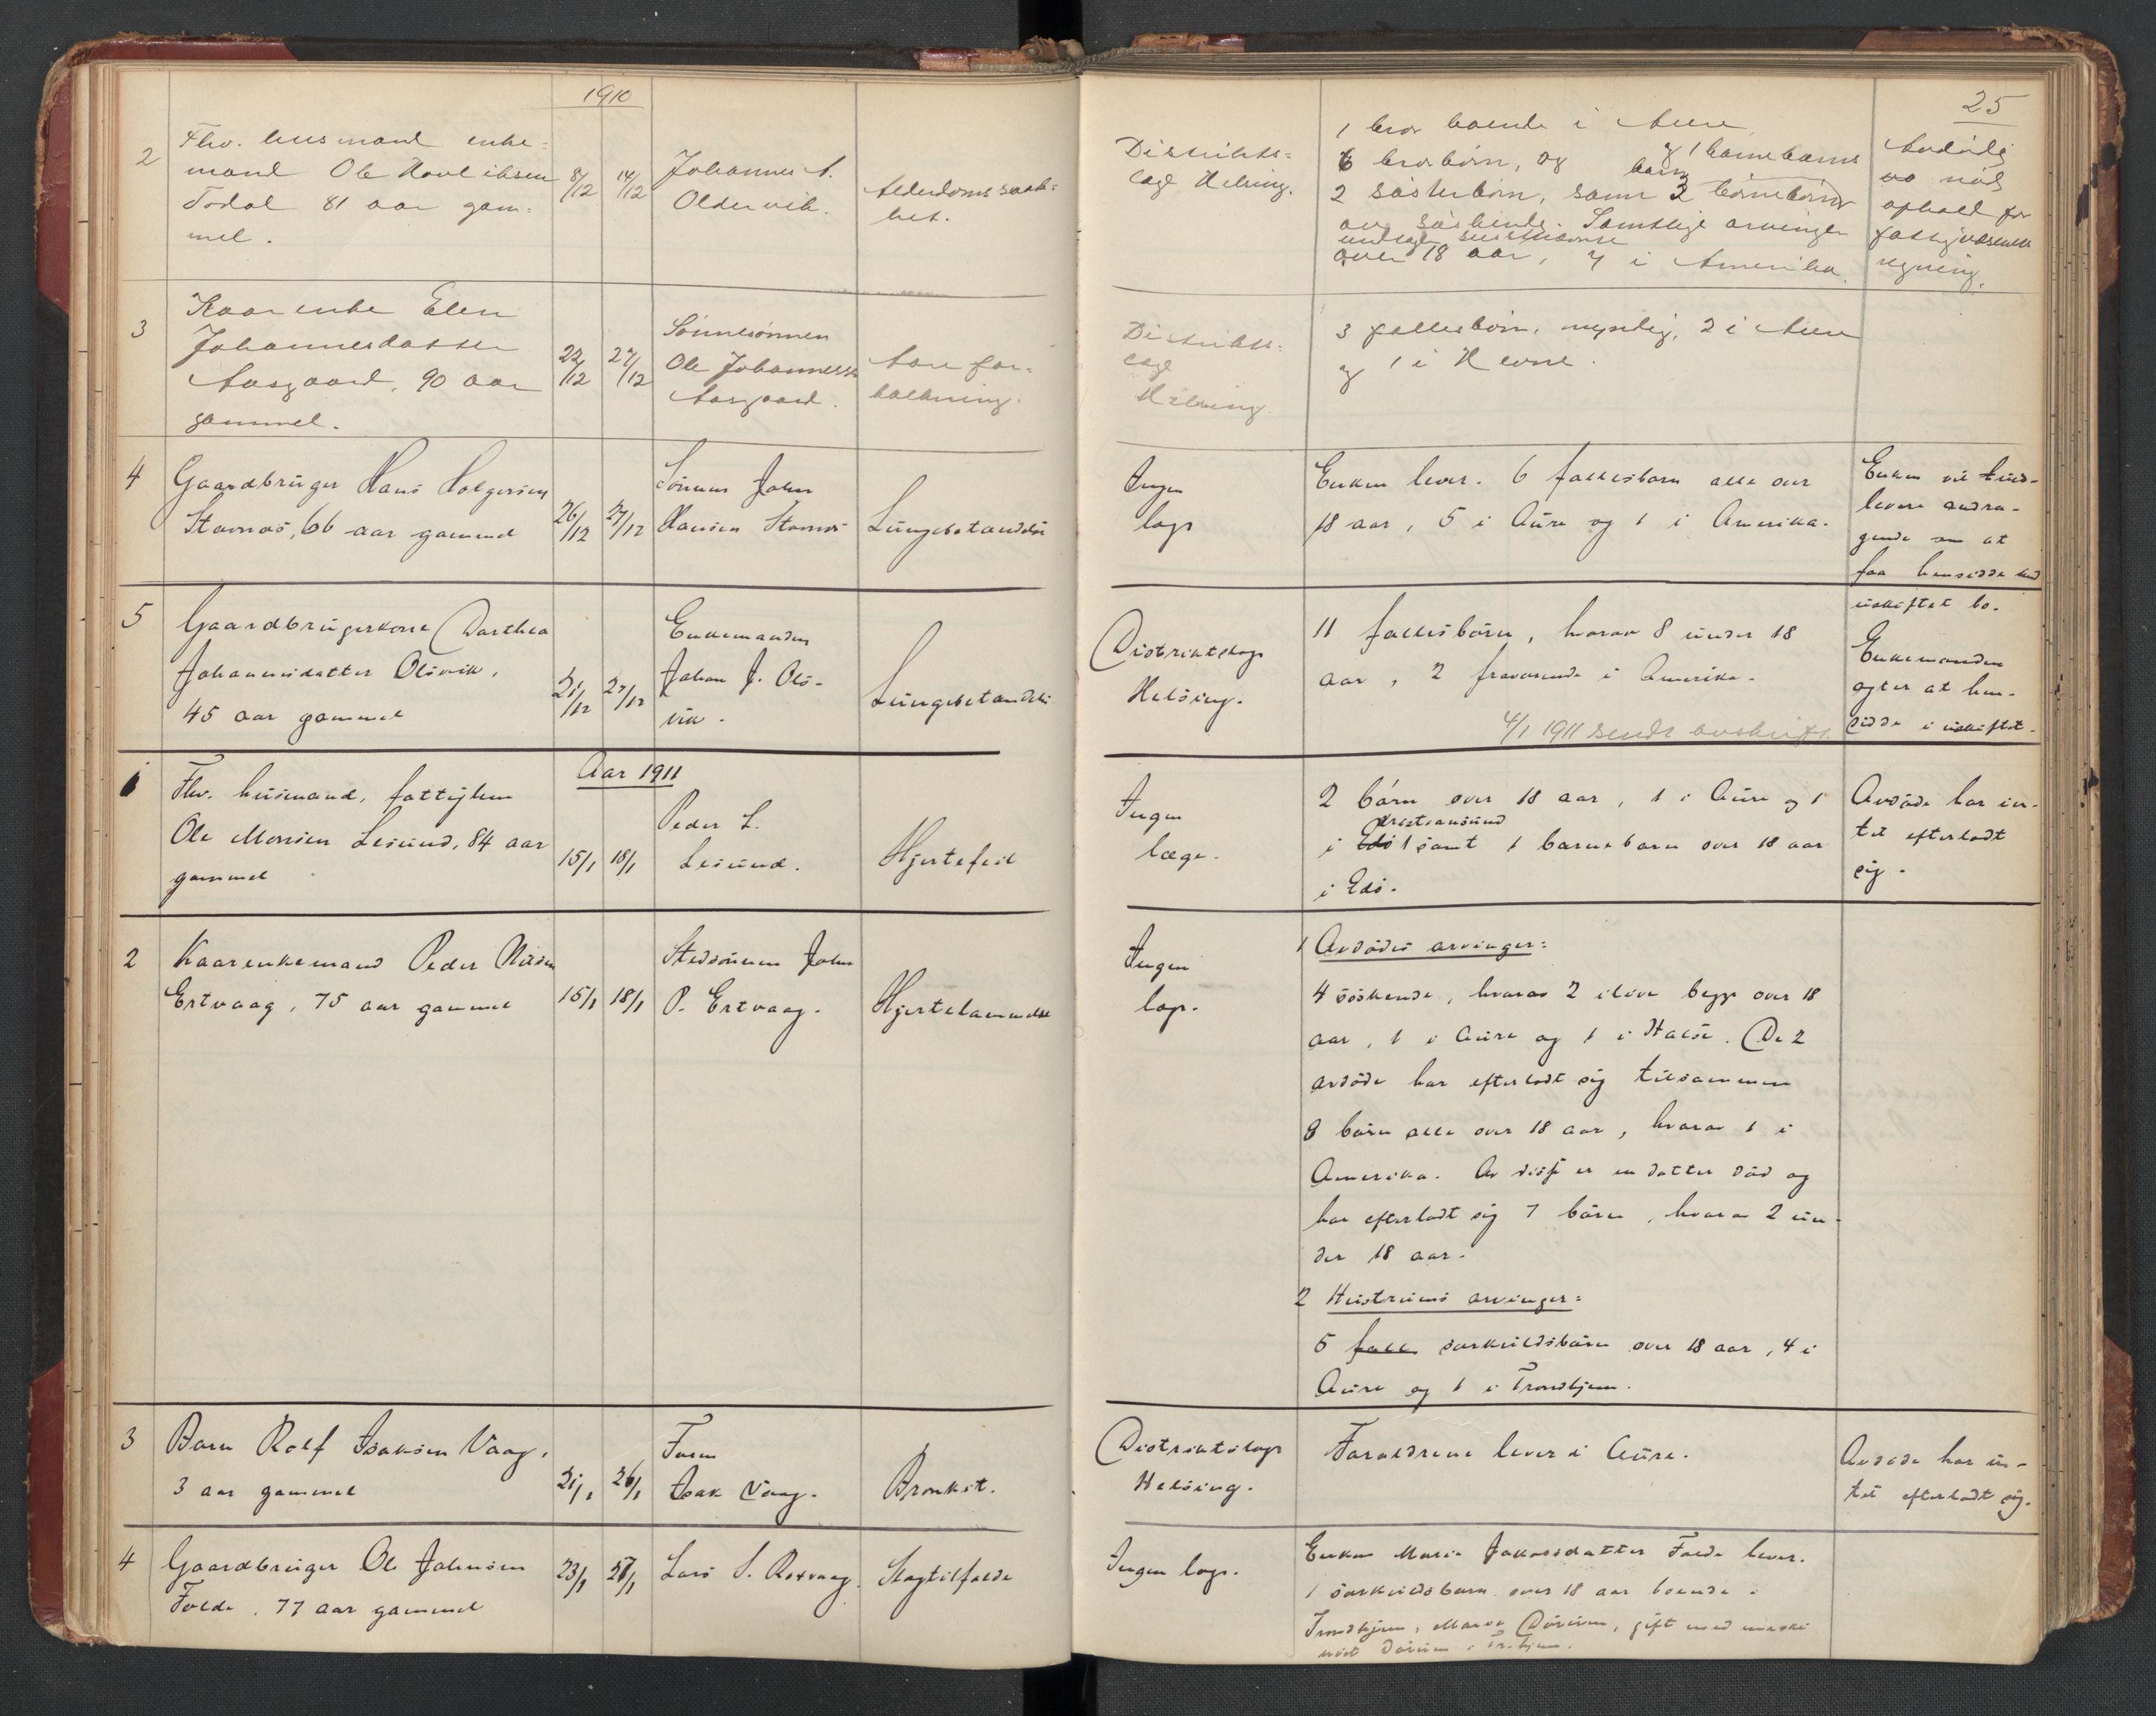 1910
25
2
Fhv. husmand enke=
mand Ole
Todal 81 aar gam=
mel.
8/12
14/12
Johannes A.
Oldervik.
Alderdomssvak=
het.
Distrikts=
læge Helsing.
1 bror boende i Aure
6 brorbørn, og
og 1 barnebarns
barn
2 søsterbørn, samt 3 børnebørn
av søskende. Samtlige arvinger
undtagen sidstnævnte
over 18 aar, 7 i Amerika.
Avdøde
nød
ophold for
fattigvæsenets
regning.
3
Kaarenke Elen
Johannesdatter
Aasgaard, 90 aar
gammel.
22/12
27/12
Sønnesønnen
Ole Johannessen
Aasgaard.
Aare for=
kalkning.
Distrikts=
læge
Helsing
3 fællesbørn, myndig, 2 i Aure
og 1 i Hevne.
4
Gaardbruger Hans Holgersen
Stavnæs, 66 aar gammel
26/12
27/12
Sønnen John
Hansen Stavnæs
Lungebetændelse
Ingen
læge
Enken lever. 6 fællesbarn alle over
18 aar, 5 i Aure og 1 i Amerika.
Enken vil
levere andra-
gende om at
faa hensidde med
uskiftet bo.
5
Gaardbrugerkone Dorthea
Johannesdatter Olsvik,
45 aar gammel
21/12
27/12
Enkemanden
Johan J. Ols-
vik.
Lungebetændelse
Distriktslæge
Helsing.
11 fællesbørn, hvorav 8 under 18
aar, 2 fraværende i Amerika.
4/1 1911 sendt avskrift.
Enkemanden
agter at hen-
sidde i uskiftet.
Aar 1911
1
Fhv. husmand, fattiglem
Ole Monsen Lesund, 84 aar
gammel
15/1
18/1
Peder L.
Lesund.
Hjertefeil
Ingen
læge.
2 børn over 18 aar, 1 i Aure og 1
Kristiansund
i Edø samt 1 barnebarn over 18 aar
i Edø.
Avdøde har in-
tet efterladt
sig.
2
Kaarenkemand Peder Nilsen
Ertvaag, 75 aar gammel
15/1
18/1
Stedsønnen John
P. Ertvaag.
Hjertelammelse
Ingen
læge.
1 Avdødes arvinger:
4 søskende, hvorav 2 ilive begge over 18
aar, 1 i Aure og 1 i Halse. De 2
avdøde har efterladt sig tilsammen
8 børn alle over 18 aar, hvorav 1 i
Amerika. Av disse er en datter død og
har efterladt sig 7 børn, hvorav 2 un-
der 18 aar.
2 Hustruens arvinger:
5 fælle særkuldsbørn over 18 aar, 4 i
Aure og 1 i Trondhjem.
3
Barn Rolf Isaksen Vaag,
3 aar gammel
21/1
26/1
Faren
Isak Vaag.
Bronkit.
Distriktslæge
Helsing.
Forældrene lever i Aure.
Avdøde har in-
tet efterladt sig.
4
Gaardbruger Ole Johnsen
Folde, 77 aar gammel
23/1
27/1
Lars S. Roxvaag.
Slagtilfælde
Ingen læge.
Enken Marie Jakobsdatter Folde lever.
1 særkuldsbarn over 18 aar boende i
Trondhjem, gift med
i Tr.hjem.